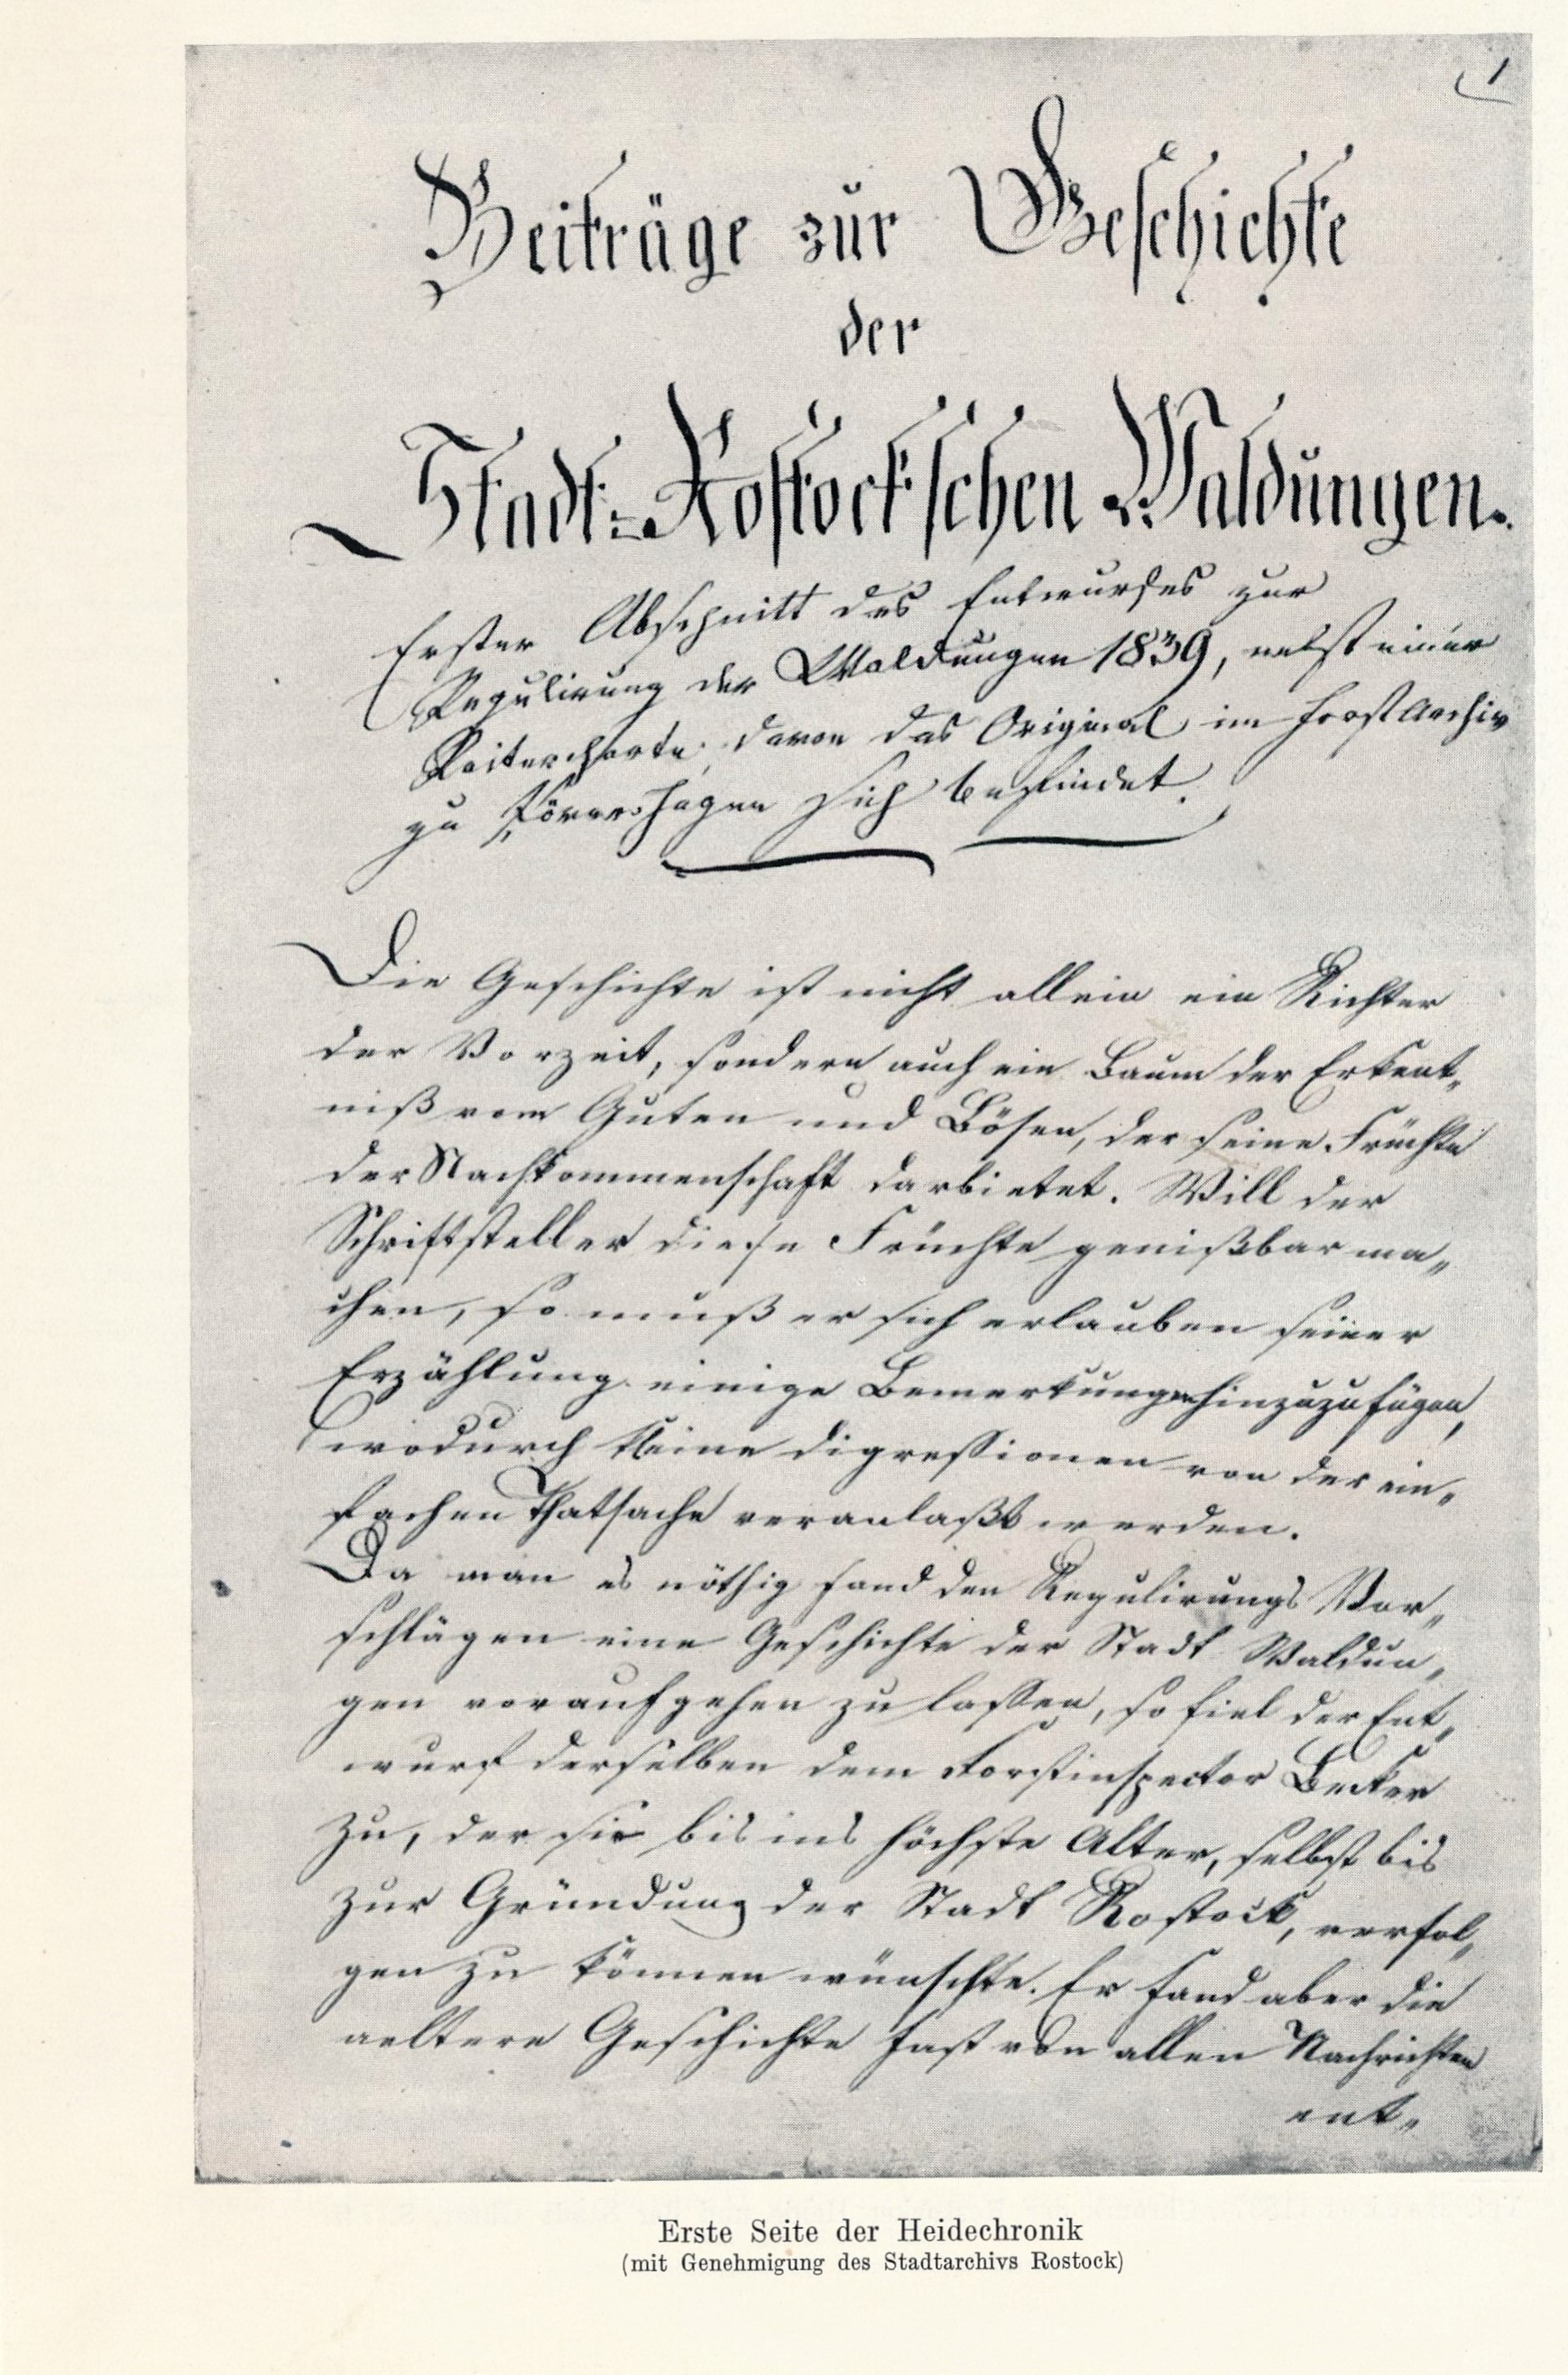 1
Beiträge zur Geschichte
der
Stadt-Rostock'schen Waldungen.
Erster Abschnitt des Entwurfes zur
Regulirung der Waldungen 1839, nebst einer
davon das Original im Forst Archiv
zu Rövershagen sich befindet.
Die Geschichte ist nicht allein ein Richter
der Vorzeit, sondern auch ein Baum der Erkent„
niß vom Guten und Bösen, der seine Früchte
der Nachkommenschaft darbietet. Will der
Schriftsteller diese Früchte genißbar ma„
chen, so muß er sich erlauben seiner
Erzählung einige Bemerkungen hinzuzufügen,
wodurch kleine digressionen von der ein„
fachen Thatsache veranlaßt werden.
Da man es nöthig fand den Regulirungs Vor„
schlägen eine Geschichte der Stadt Waldun„
gen voraufgehen zu lassen, so fiel der Ent„
wurf derselben dem Forstinspector Becker
zu, der sie bis ins höchste Alter, selbst bis
zur Gründung der Stadt Rostock, verfol„
gen zu können wünschte. Er fand aber die
aeltere Geschichte fast von allen Nachrichten
ent„
Erste Seite der Heidechronik
(mit Genehmigung des Stadtarchivs Rostock)